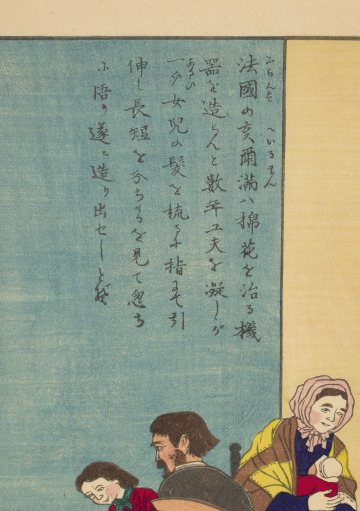 法國の亥爾満ハ棉花を治る機
ふらんす　へいるまん
器を造らんと數年工夫を凝しが
一夕女兒の髪を梳るに指にて引
あるひ
伸し長短を分ちるを見て忽ち
に悟り遂に造り出せしとぞ